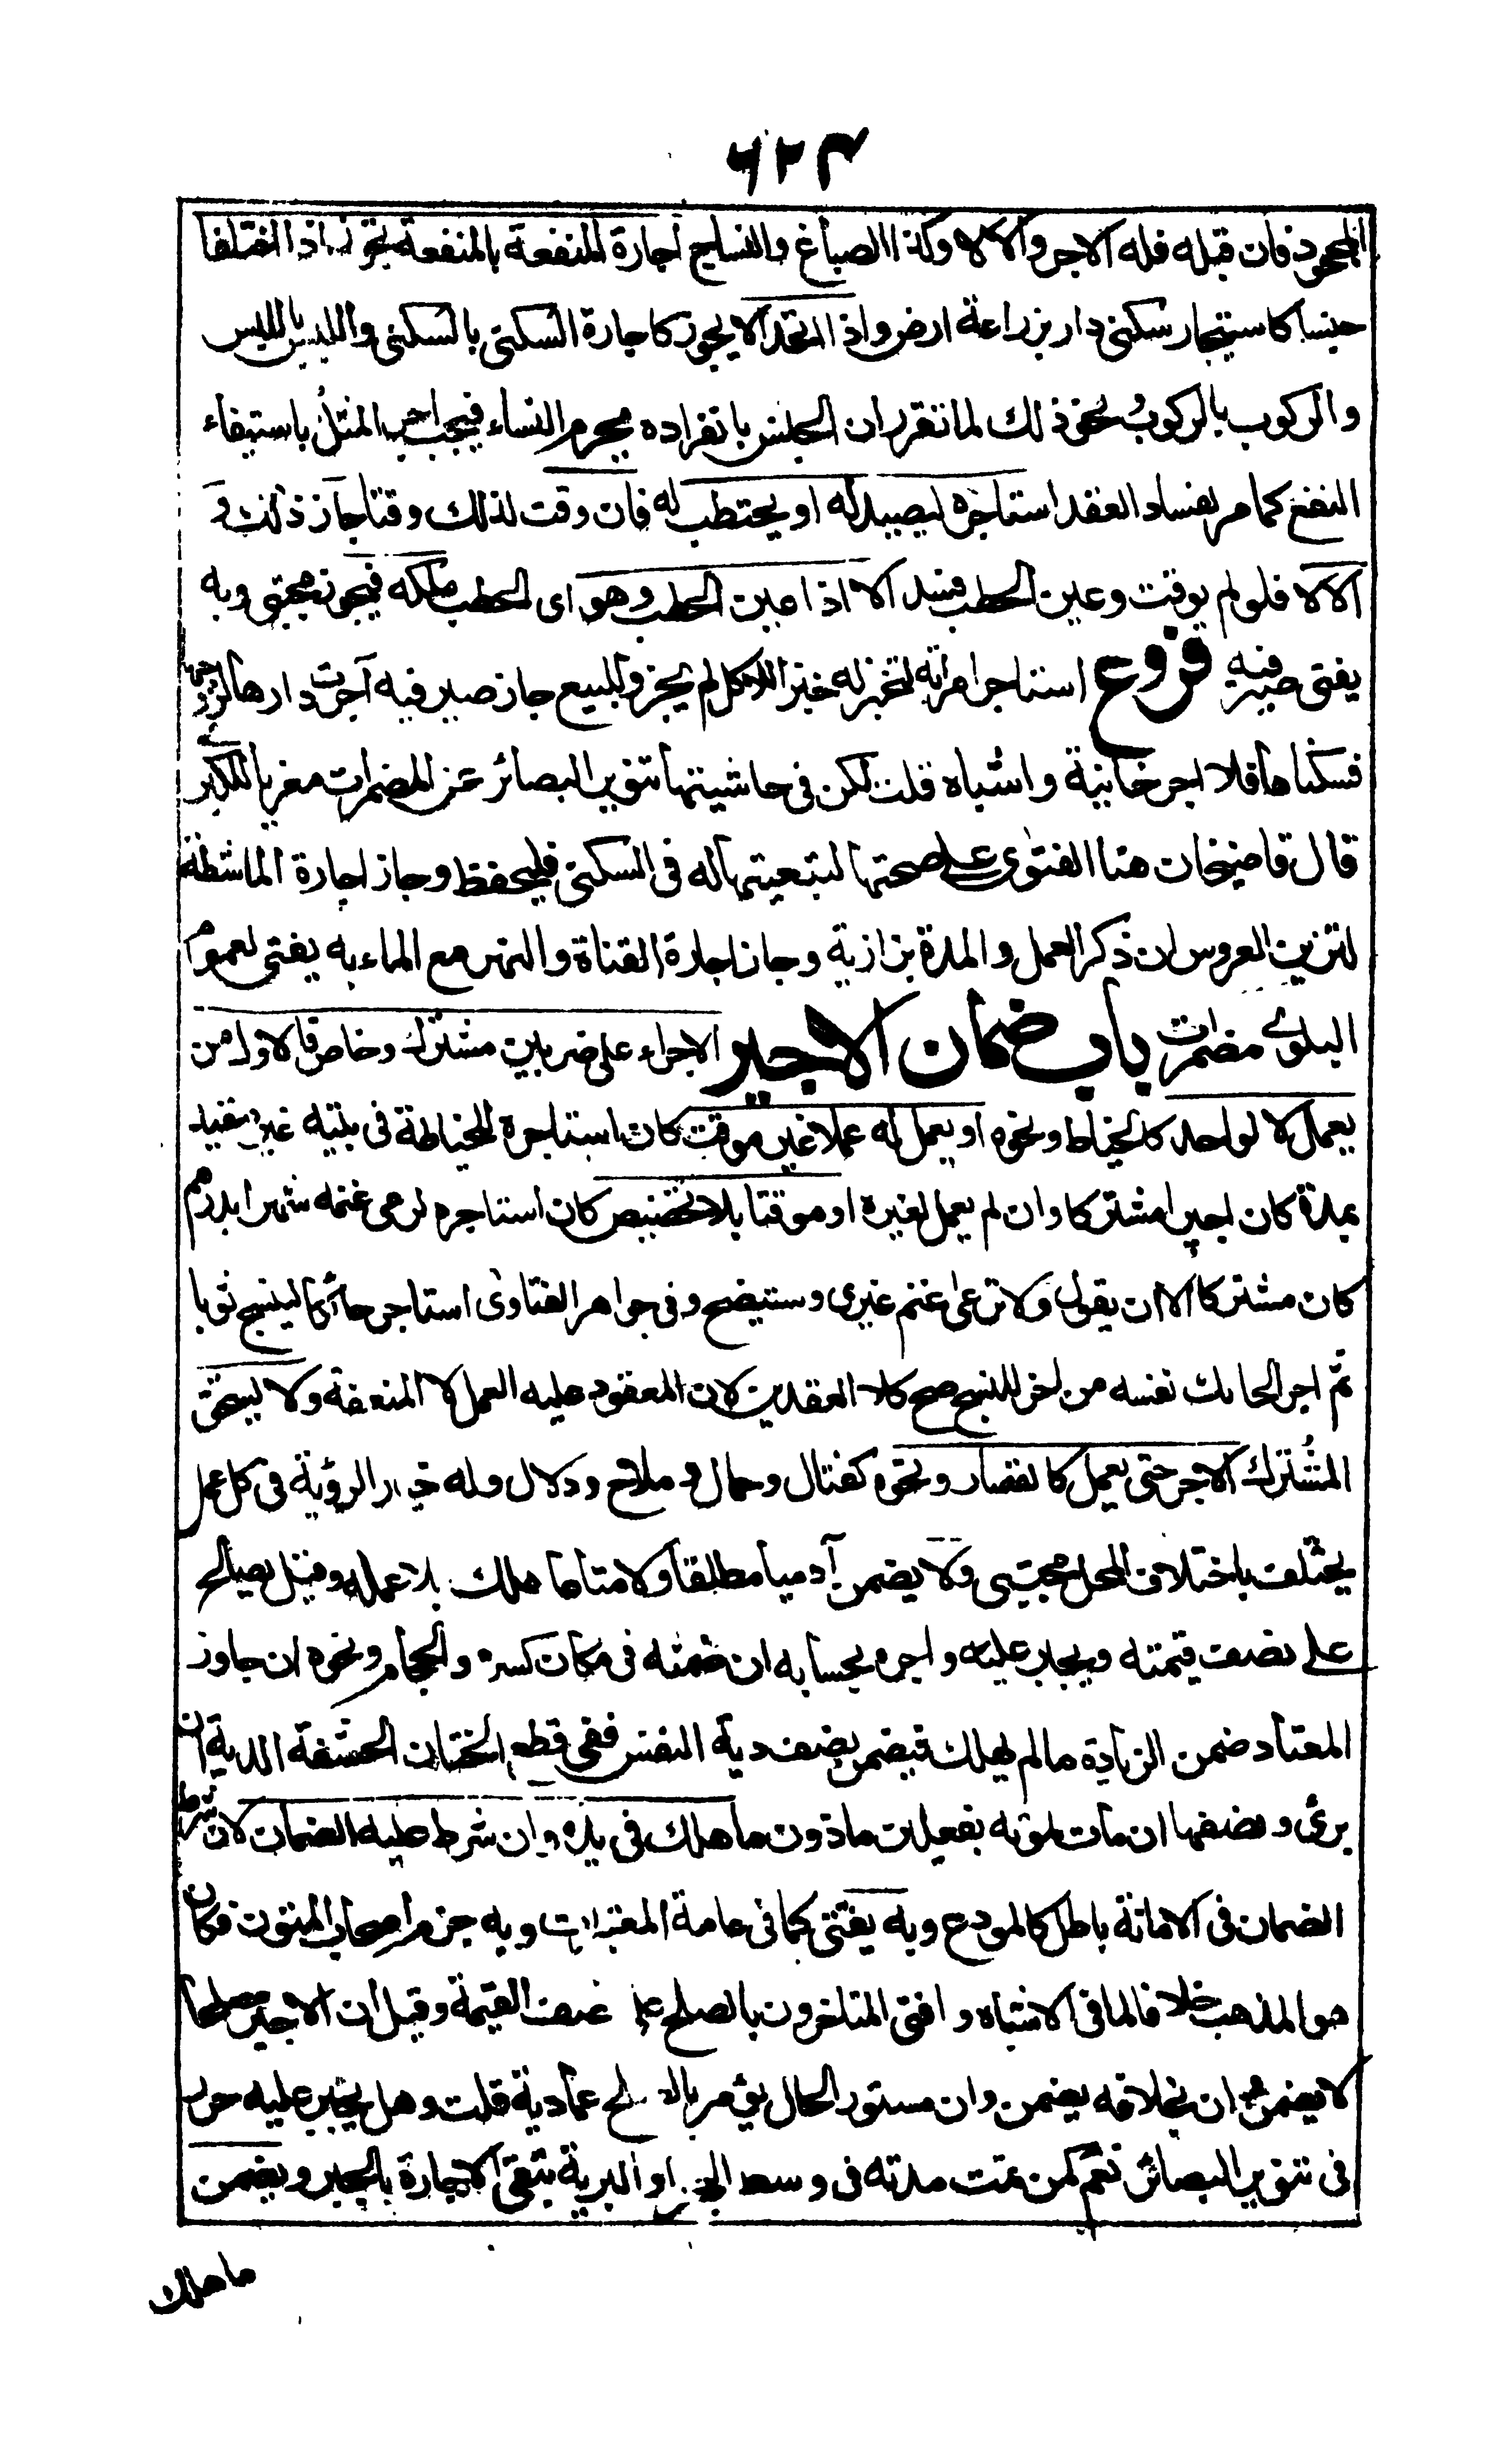 ٦٢٣
الجحود فان قبله فله الاجر والا لا وكذا الصباغ والنساج اجارة المنفعة بالمنفعة تجوز اذا اختلفا
جنسا كاستيجار سكنى دار بزراعة ارض واذا اتحدا لا يجوز كاجارة السكنى بالسكنى واللبس باللبس
والركوب بالركوب ونحو ذلك لما تقرر ان الجنس بانفراده يحرم النساء فيجب اجر المثل باستيفاء
النفع كما مر لفساد العقد استاجره ليصيد له او يحتطب له فان وقت لذلك وقتا جاز ذلك و
الا لا فلو لم يوقت وعين الحطب فسد الا اذا عين الحطب وهو اى الحطب ملكه فيجوز مجتبى وبه
يفتى صيرفيه فروع استاجر امراته لتخبز له خبزا للاكل لم يجز وللبيع جاز صيرفيه آجرت دارها لزوجها
فسكناها فلا اجر خانية واشباه قلت لكن فى حاشيتها تنوير البصائر عن المضمرات معزيا للكبرى
قال قاضيخان هنا الفتوى على صحتها لتبعيتها له فى السكنى فليحفظ وجاز اجارة الماشطة
لتزين العروس ان ذكر العمل والمدة بزازية وجاز اجارة القناة والنهر مع الماء به يفتى لعموم
البلوى مضمرات باب ضمان الاجير الاجراء على ضربين مشترك وخاص فالاول من
يعمل لا لواحد كالخياط ونحوه او يعمل له عملا غير موقت كان استاجره للخياطة فى بيته غير مقيد
بمدة كان اجيرا مشتركا وان لم يعمل لغيره او موقتا بلا تخصيص كان استاجره لرعى غنمه شهرا بدرهم
كان مشتركا الا ان يقول ولا ترعى غنم غيرى وستيضح وفى جواهر الفتاوى استاجر حائكا لينسج ثوبا
ثم اجر الحائك نفسه من اخر للنسج صح كلا العقدين لان المعقود عليه العمل لا المنعفة ولا يستحق
المشترك الاجر حتى يعمل كالقصار ونحوه كفتال وحمال و ملاح ودلال وله خيار الرؤية فى كل عمل
يختلف باختلاف المحل مجتبى ولا يضمن آدميا مطلقا ولا متاعا هلك بلا عمله وقيل يصالح
على نصف قيمته ويجبر عليه واجره بحسابه ان ضمنه فى مكان كسره والحجام ونحوه ان جاوز
المعتاد ضمن الزيادة مالم يهلك فيضمن نصف دية النفس ففى قطع الختان الحشفة الدية ان
برئ ونصفها ان مات لموته بفعلين ماذون ما هلك فى يده وان شرط عليه الضمان لان شرط
الضمان فى الامانة باطل كالمودع وبه يفتى كما فى عامة المعتبرات وبه جزم اصحاب المتون فكان
هو المذهب خلافا لما فى الاشباه وافتى المتاخرون بالصلح على نصف القيمة وقيل ان الاجير مصلحا
لا يضمن وان بخلافه يضمن وان مستور الحال يؤمر بالصلح عمادية قلت وهل يجبر عليه حرر
فى تنوير البصائر نعم كمن تمت مدته فى وسط البحر او البرية تبقى الاجارة بالجبر ويضمن
ما هلك